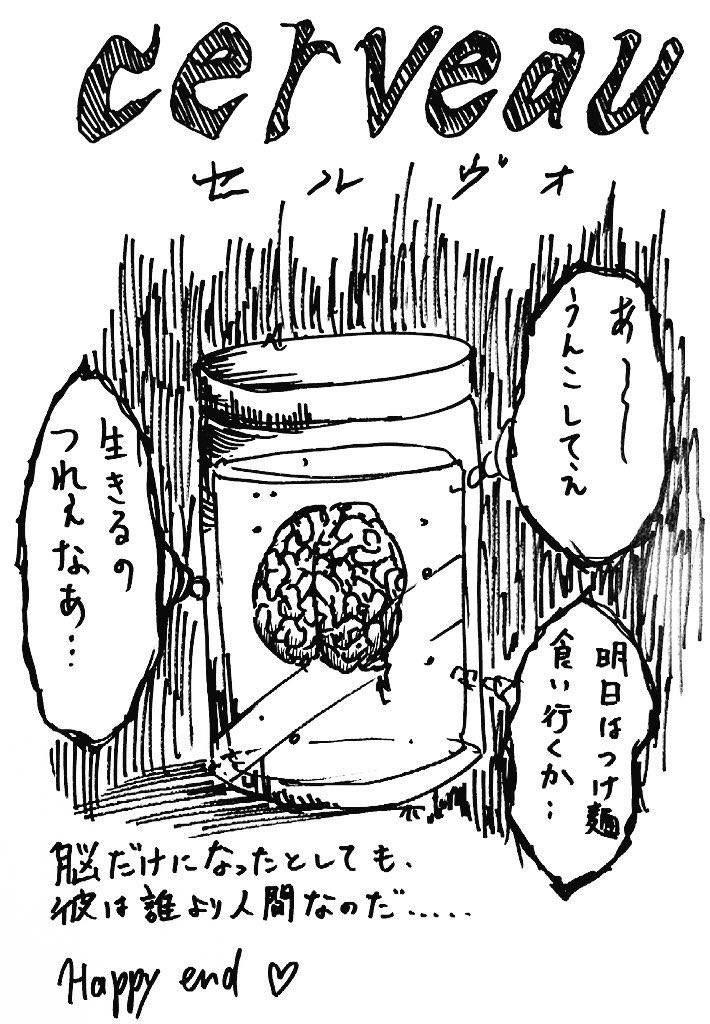 cerveau
セルヴォ
あ〜〜
うんこしてえ
生きるの
つれぇなあ…
明日はつけ麺
食い行くか…
脳だけになったとしても、
彼は誰より人間なのだ.....
Happy end ♡